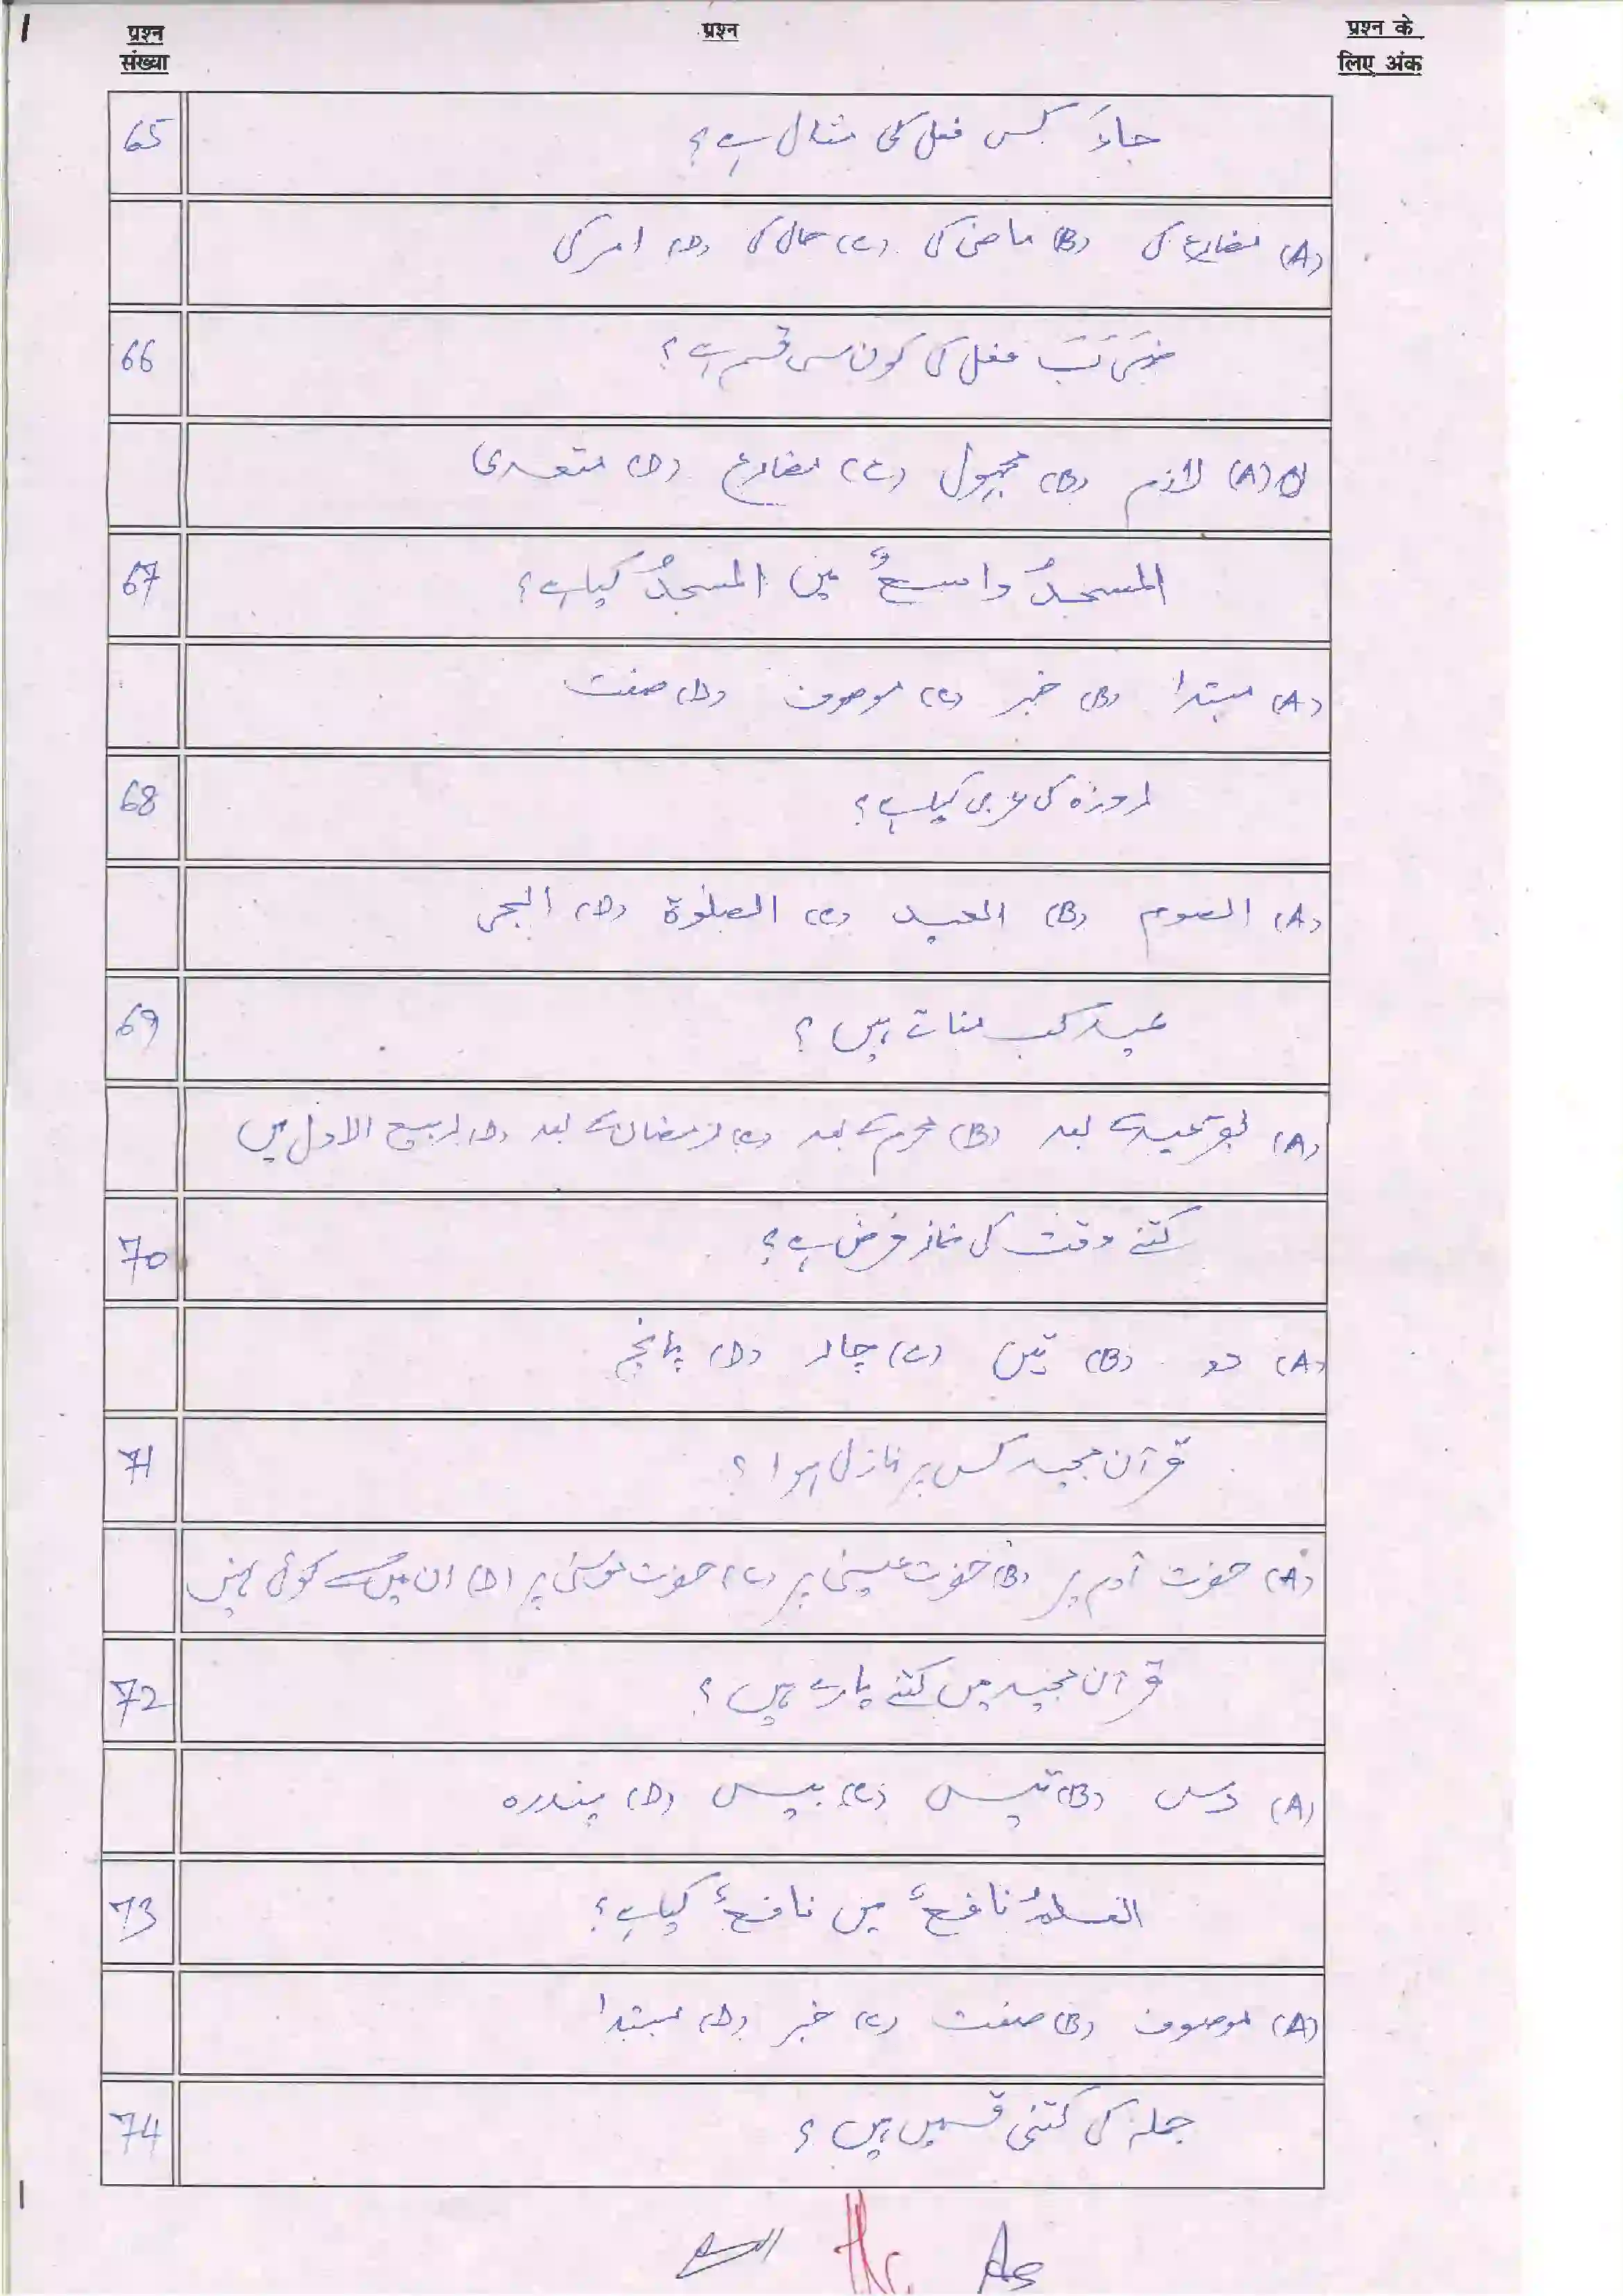 प्रश्न संख्या
प्रश्न
प्रश्न के लिए अंक
65 جاءَ کس فعل کی مثال ہے؟
(A) مضارع کی (B) ماضی کی (C) حال کی (D) امر کی
66 ضَرَبَ فعل کی کون سی قسم ہے؟
(A) لازم (B) مجہول (C) مضارع (D) متعدی
67 المسجدُ واسعٌ میں المسجدُ کیا ہے؟
(A) مبتدا (B) خبر (C) موصوف (D) صفت
68 روزہ کی عربی کیا ہے؟
(A) الصوم (B) العید (C) الصلوٰة (D) الحج
69 عید کب مناتے ہیں؟
(A) بقرعید کے بعد (B) محرم کے بعد (C) رمضان کے بعد (D) ربیع الاول میں
70 کتنے وقت کی نماز فرض ہے؟
(A) دو (B) تین (C) چار (D) پانچ
71 قرآن مجید کس پر نازل ہوا؟
(A) حضرت آدم پر (B) حضرت عیسیٰ پر (C) حضرت موسیٰ پر (D) ان میں سے کوئی نہیں
72 قرآن مجید میں کتنے پارے ہیں؟
(A) دس (B) تیس (C) بیس (D) پندرہ
73 العلمُ نافعٌ میں نافعٌ کیا ہے؟
(A) موصوف (B) صفت (C) خبر (D) مبتدا
74 جملہ کی کتنی قسمیں ہیں؟